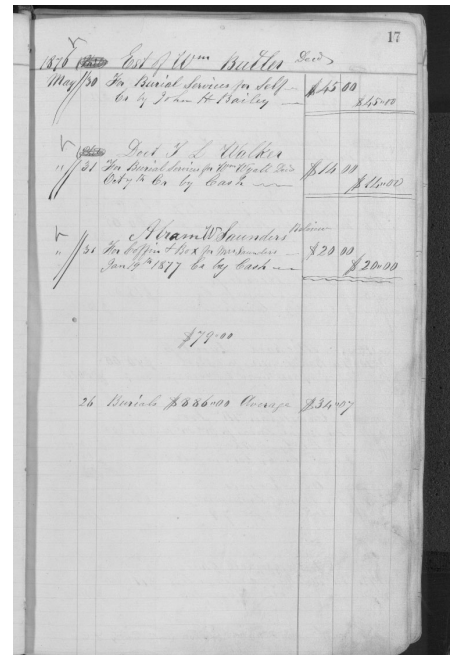 17
1876 Est of Wm Butler Decd
May 30 For Burial Services for Self $45 00
Cr by John H Bailey $45 00
Doct T L Walker
" 31 For Burial Services for Wm Wyatt Decd $14 00
Oct 7th Cr by Cash $14 00
Abram W Saunders
" 31 For Coffin & Box for Mrs Saunders $20 00
Jan 19th 1877 Cr by Cash $20 00
$79 00
26 Burials $886 00 Average $34 07